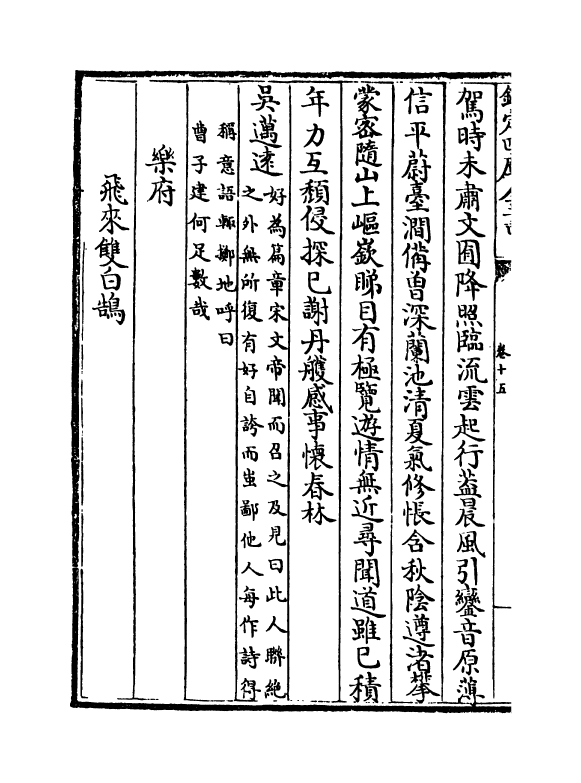 欽定四庫全書
卷十五
駕時未肅文囿降照臨流雲起行葢晨風引鑾音原薄
信平蔚臺澗備曽深蘭池清夏氣修帳含秋陰遵渚攀
蒙宻隨山上嶇嶔睇目有極覽遊情無近尋聞道雖已積
年力互頽侵探已謝丹雘感事懷春林
吳邁逺
好為篇章宋文帝聞而召之及見曰此人聯絶
之外無所復有好自誇而蚩鄙他人每作詩得
稱意語輒擲地呼曰
曹子建何足數哉
樂府
飛來雙白鵠